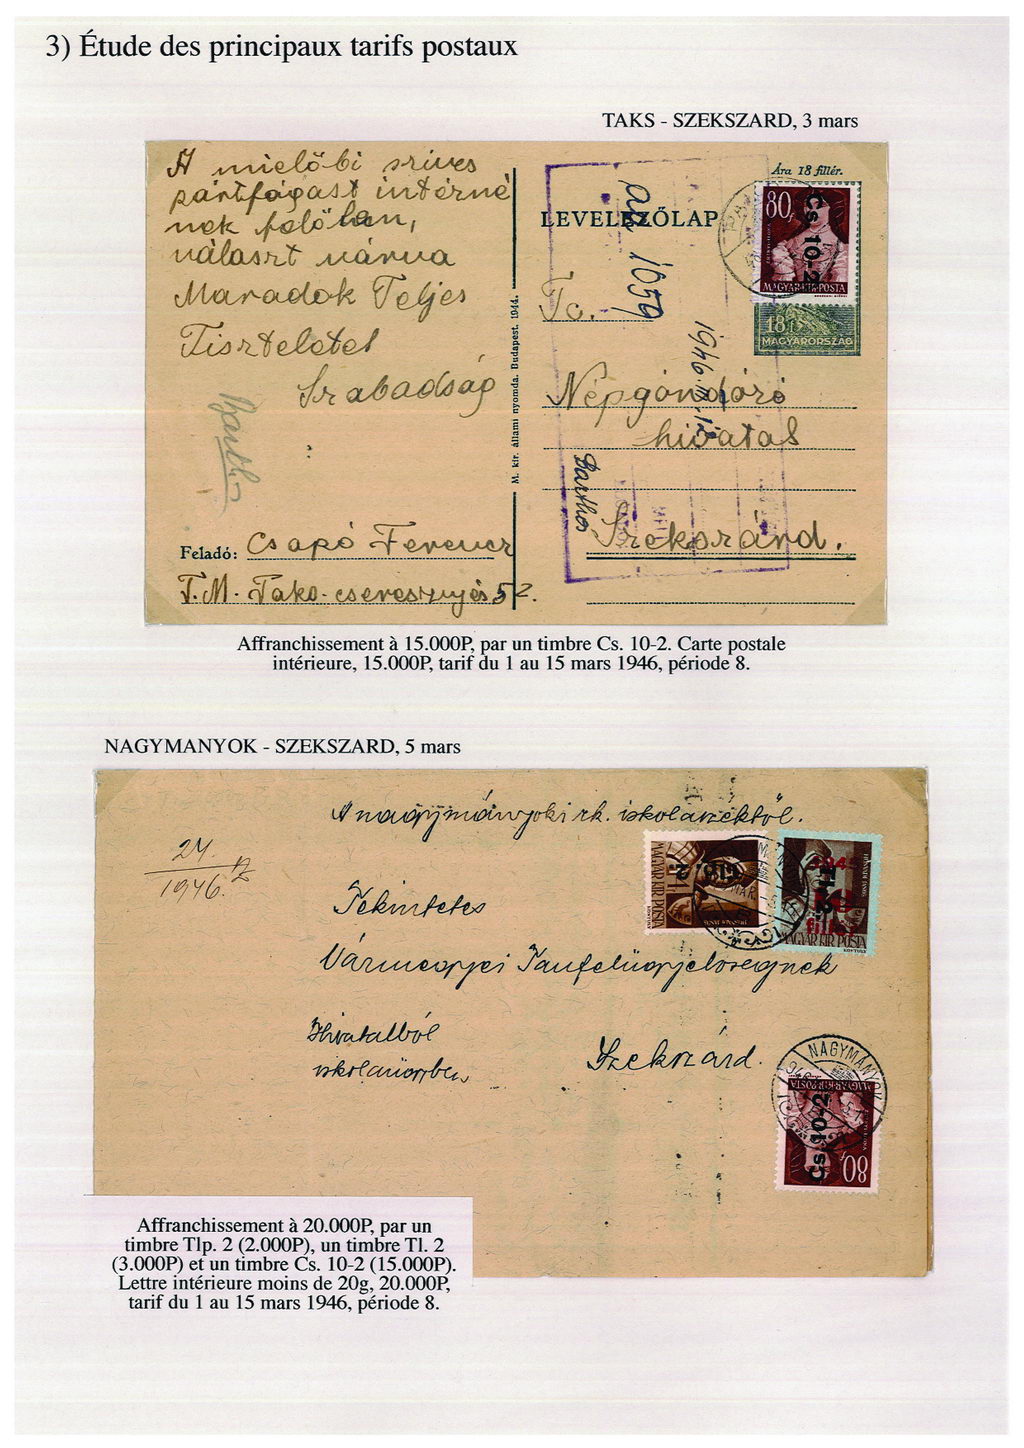 3) Étude des principaux tarifs postaux
TAKS - SZEKSZARD, 3 mars
A mielőbi szives
pártfogast intérné
nek felölem,
választ várva
Maradok Teljes
Tisztelelel
Szabadság
Feladó: Csapó Ferencz
T.M. Taks. cseresznyés 52.
M. kir. állami nyomda. Budapest. 1944.
Ára 18 fillér.
LEVELEZŐLAP
80f
Cs. 10-2
MAGYAR·KIR·POSTA
18f
MAGYARORSZÁG
1659
1946. III. 12
To.
Népgondózó
hivatal
Barthos
Szekszárd.
Affranchissement à 15.000P, par un timbre Cs. 10-2. Carte postale
intérieure, 15.000P, tarif du 1 au 15 mars 1946, période 8.
NAGYMANYOK - SZEKSZARD, 5 mars
A nagymányoki rk. iskolaszéktől.
24
1946.
Tekintetes
Vármegyei Tanfelügyelőségnek
Hivatalból
iskolaügyben
Szekszárd.
Tlp. 2
MAGYAR KIR POSTA
Tl. 2
fillér
MAGYAR KIR POSTA
NAGYMÁNYOK
MAGYAR·KIR·POSTA
Cs 10-2
80f
Affranchissement à 20.000P, par un
timbre Tlp. 2 (2.000P), un timbre Tl. 2
(3.000P) et un timbre Cs. 10-2 (15.000P).
Lettre intérieure moins de 20g, 20.000P,
tarif du 1 au 15 mars 1946, période 8.